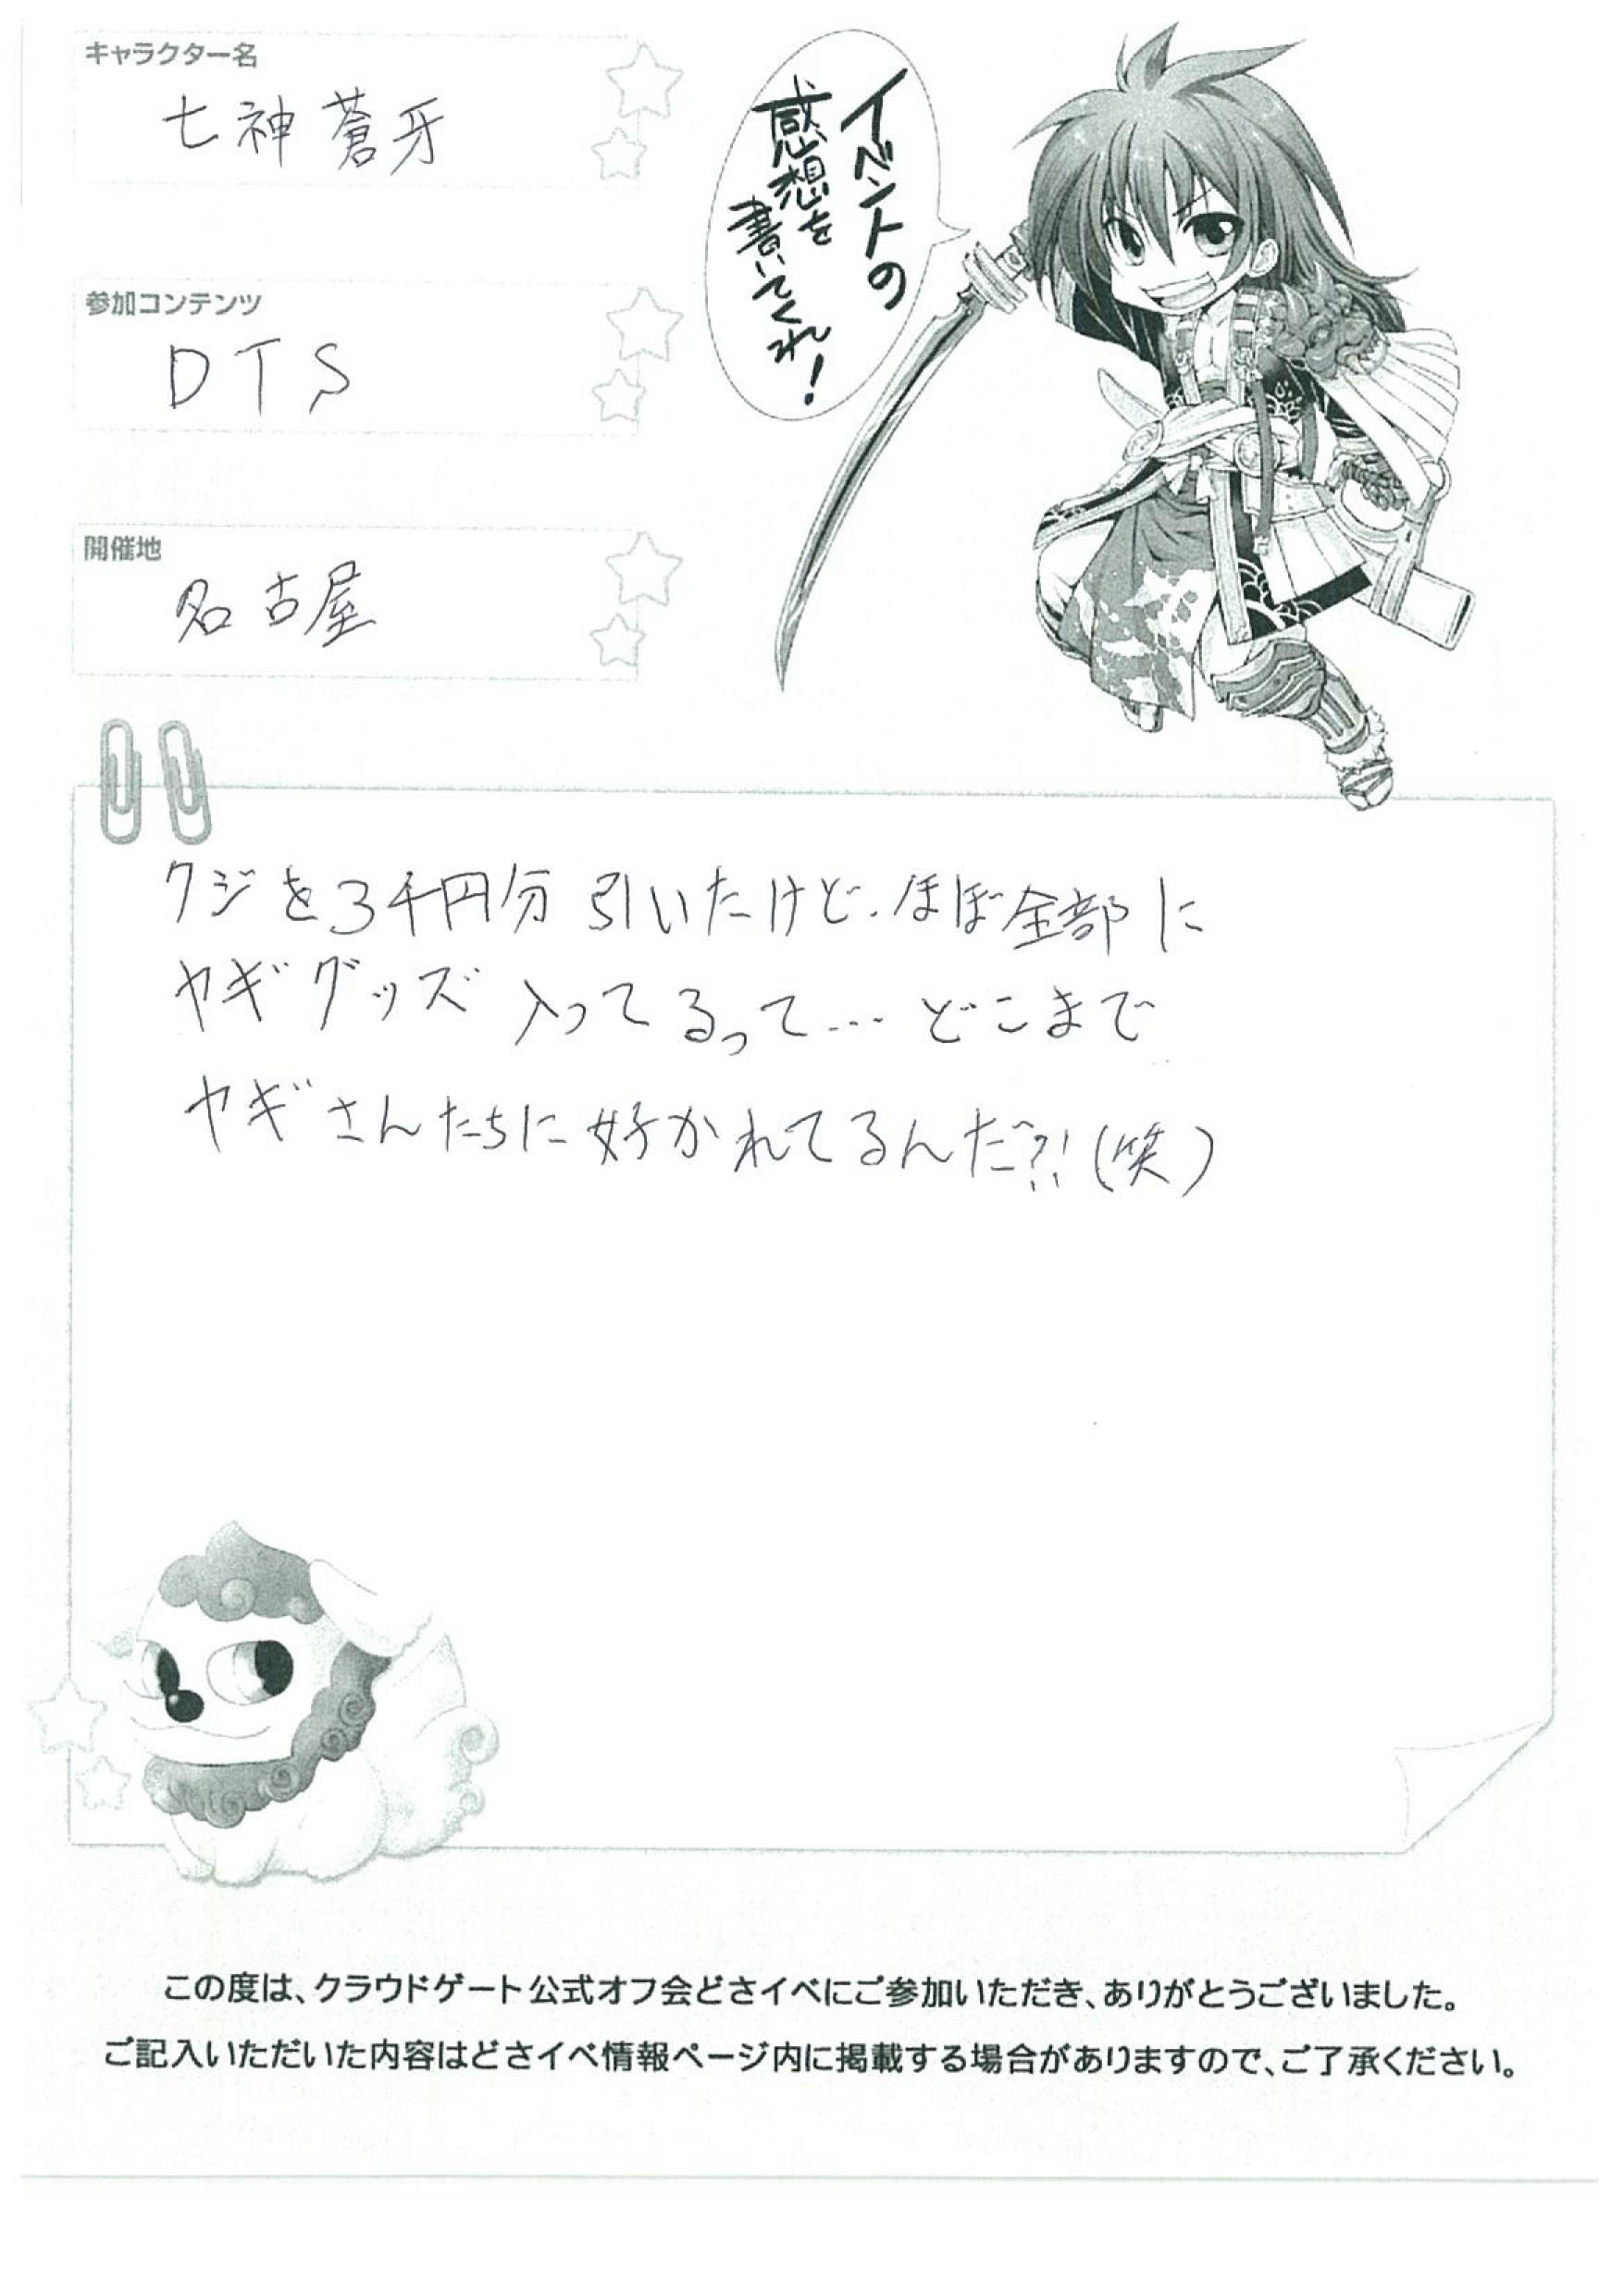 キャラクター名
七神蒼牙
参加コンテンツ
DTS
開催地
名古屋
イベントの
感想を
書いてくれ!
クジを3千円分引いたけど、ほぼ全部に
ヤギグッズ入ってるって…どこまで
ヤギさんたちに好かれてるんだ?!(笑)
この度は、クラウドゲート公式オフ会どさイベにご参加いただき、ありがとうございました。
ご記入いただいた内容はどさイベ情報ページ内に掲載する場合がありますので、ご了承ください。